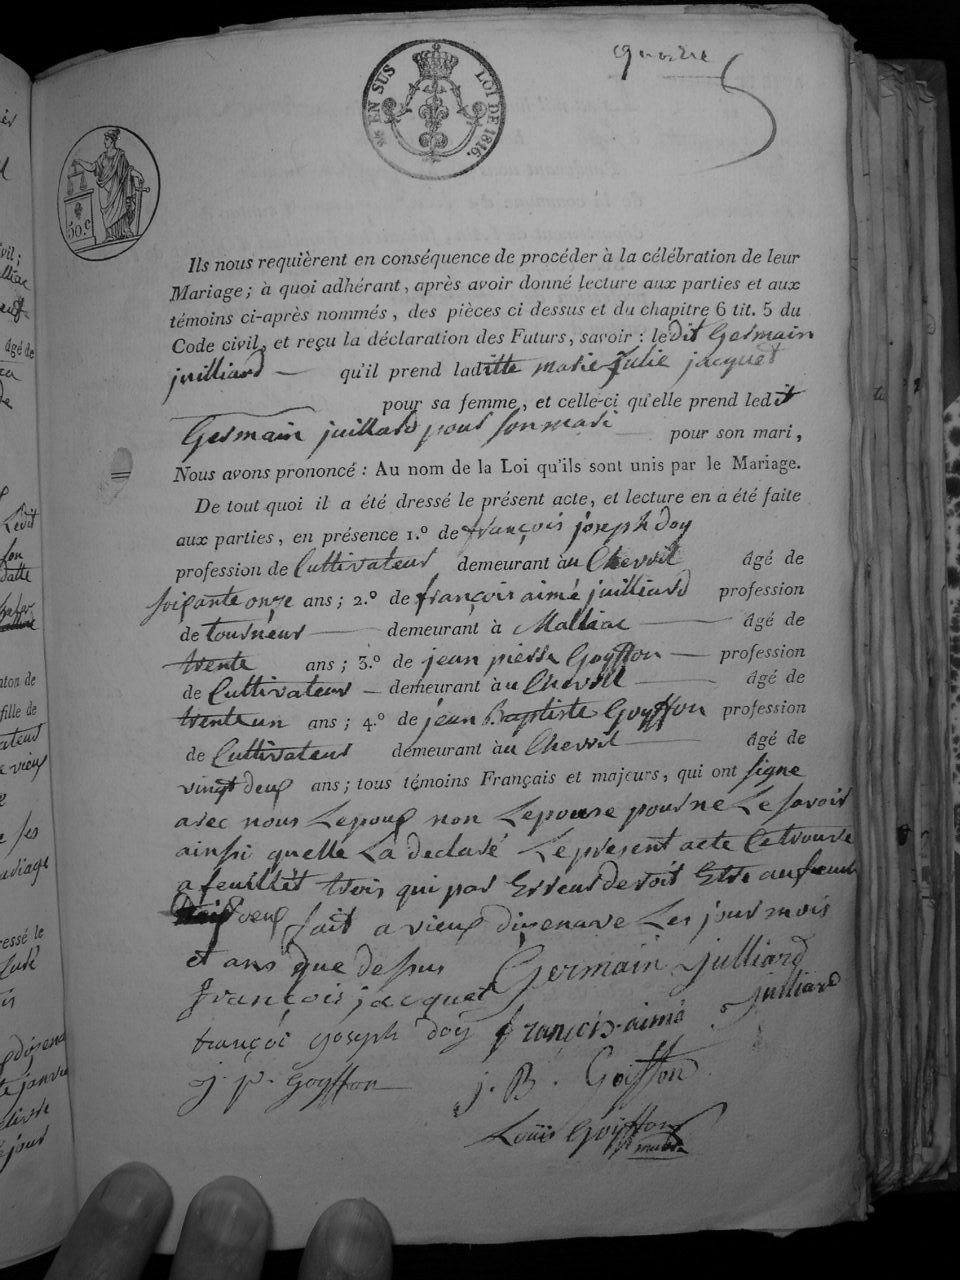 quatre
EN SUS LOI DE 1816.
50.c
Ils nous requièrent en conséquence de procéder à la célébration de leur
Mariage; à quoi adhérant, après avoir donné lecture aux parties et aux
témoins ci-après nommés, des pièces ci dessus et du chapitre 6 tit. 5 du
Code civil, et reçu la déclaration des Futurs, savoir : ledit Germain
juilliard — qu'il prend laditte marie julie jacquet
pour sa femme, et celle-ci qu'elle prend ledit
Germain juillard pour son mari — pour son mari,
Nous avons prononcé : Au nom de la Loi qu'ils sont unis par le Mariage.
De tout quoi il a été dressé le présent acte, et lecture en a été faite
aux parties, en présence 1.º de françois joseph doy
profession de Cultivateur demeurant au Chevril âgé de
soixante onze ans; 2.º de françois aimé juilliard profession
de tourneur — demeurant à Malliac — âgé de
trente ans; 3.º de jean pierre Goyffon — profession
de Cultivateur — demeurant au Chevril — âgé de
trente un ans; 4.º de jean Baptiste Goyffon profession
de Cultivateur demeurant au Chevril — âgé de
vingt deux ans; tous témoins Français et majeurs, qui ont signe
avec nous Lepoux non Lepouse pour ne Le savoir
ainsi quelle La declaré Le present acte Ce trouve
a feuillet trois qui par Erreur devoit Etre au feuillet
deux fait a vieux disenave Les jour mois
et ans que dessus Germain Julliard
françois jacquet
françoi joseph doy françois-aimé Juilliard
j. p. Goyffon j. B. Goiffon
Louis Goyffon
maire